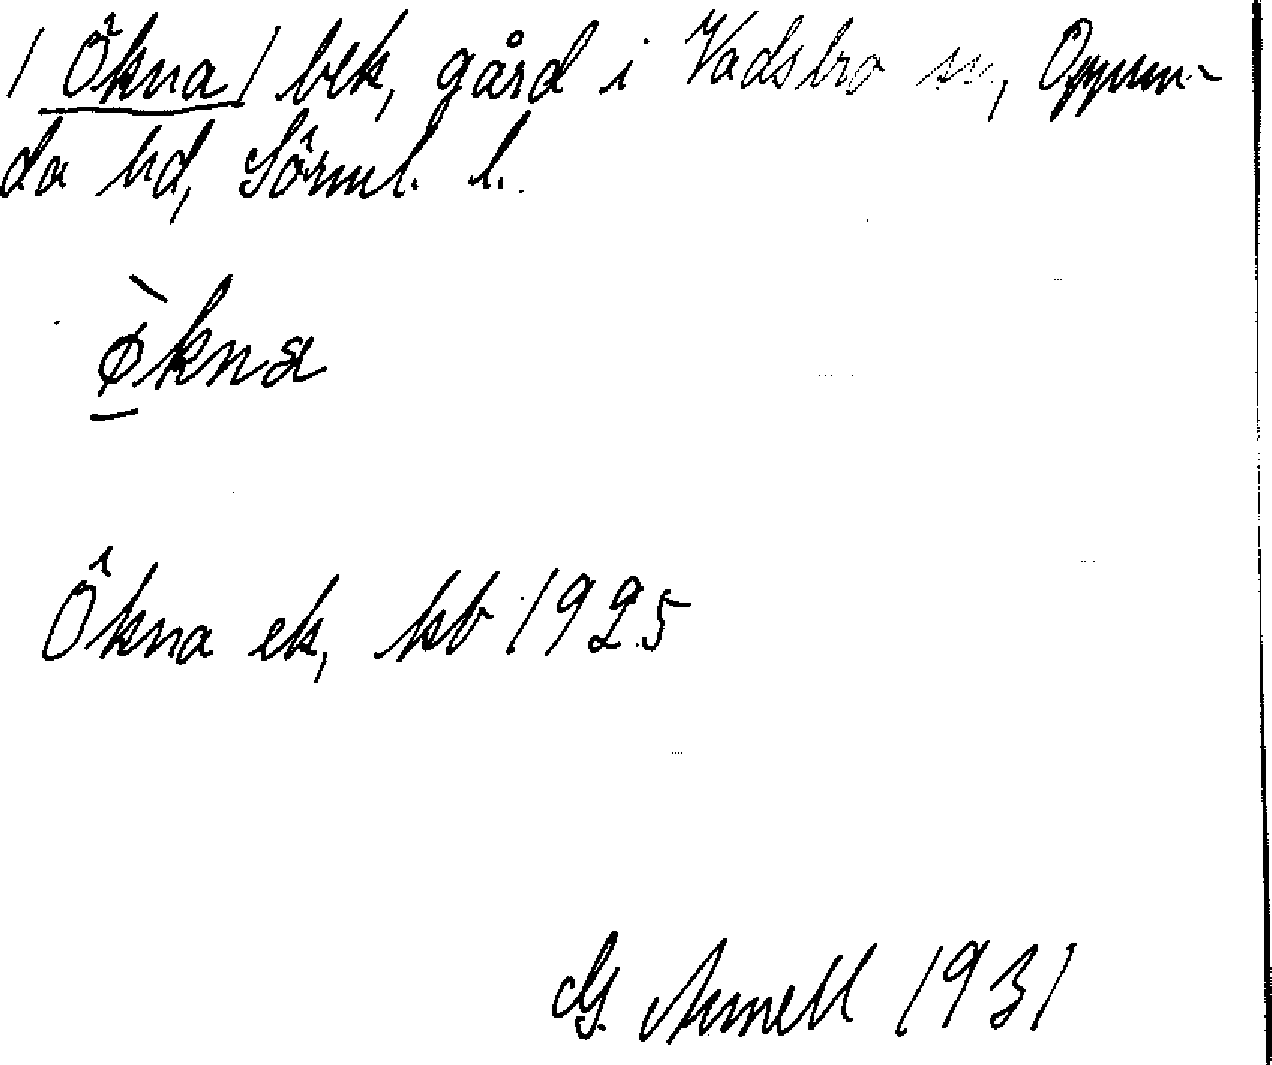 /Ökna/ bek, gård i Vadsbro sn, Oppun-
da hd, Sörml. l.
ø̀kna
Ökna ek, kb 1925
G. Armell 1931